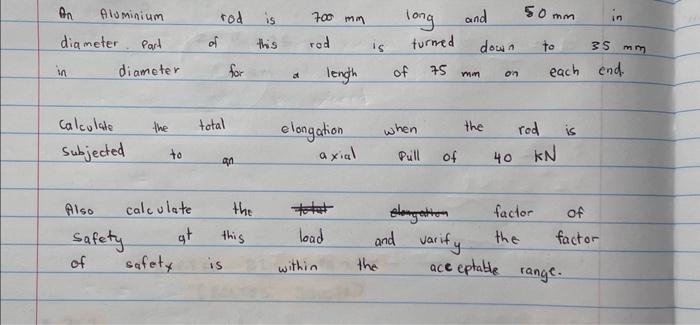 An Aluminium rod is 700 mm long and 50 mm in
diameter. Part of this rod is turned down to 35 mm
in diameter for a length of 75 mm on each end.
Calculate the total elongation when the rod is
subjected to an axial Pull of 40 KN
Also calculate the total elongation factor of
safety at this load and varify the factor
of safety is within the aceeptable range.